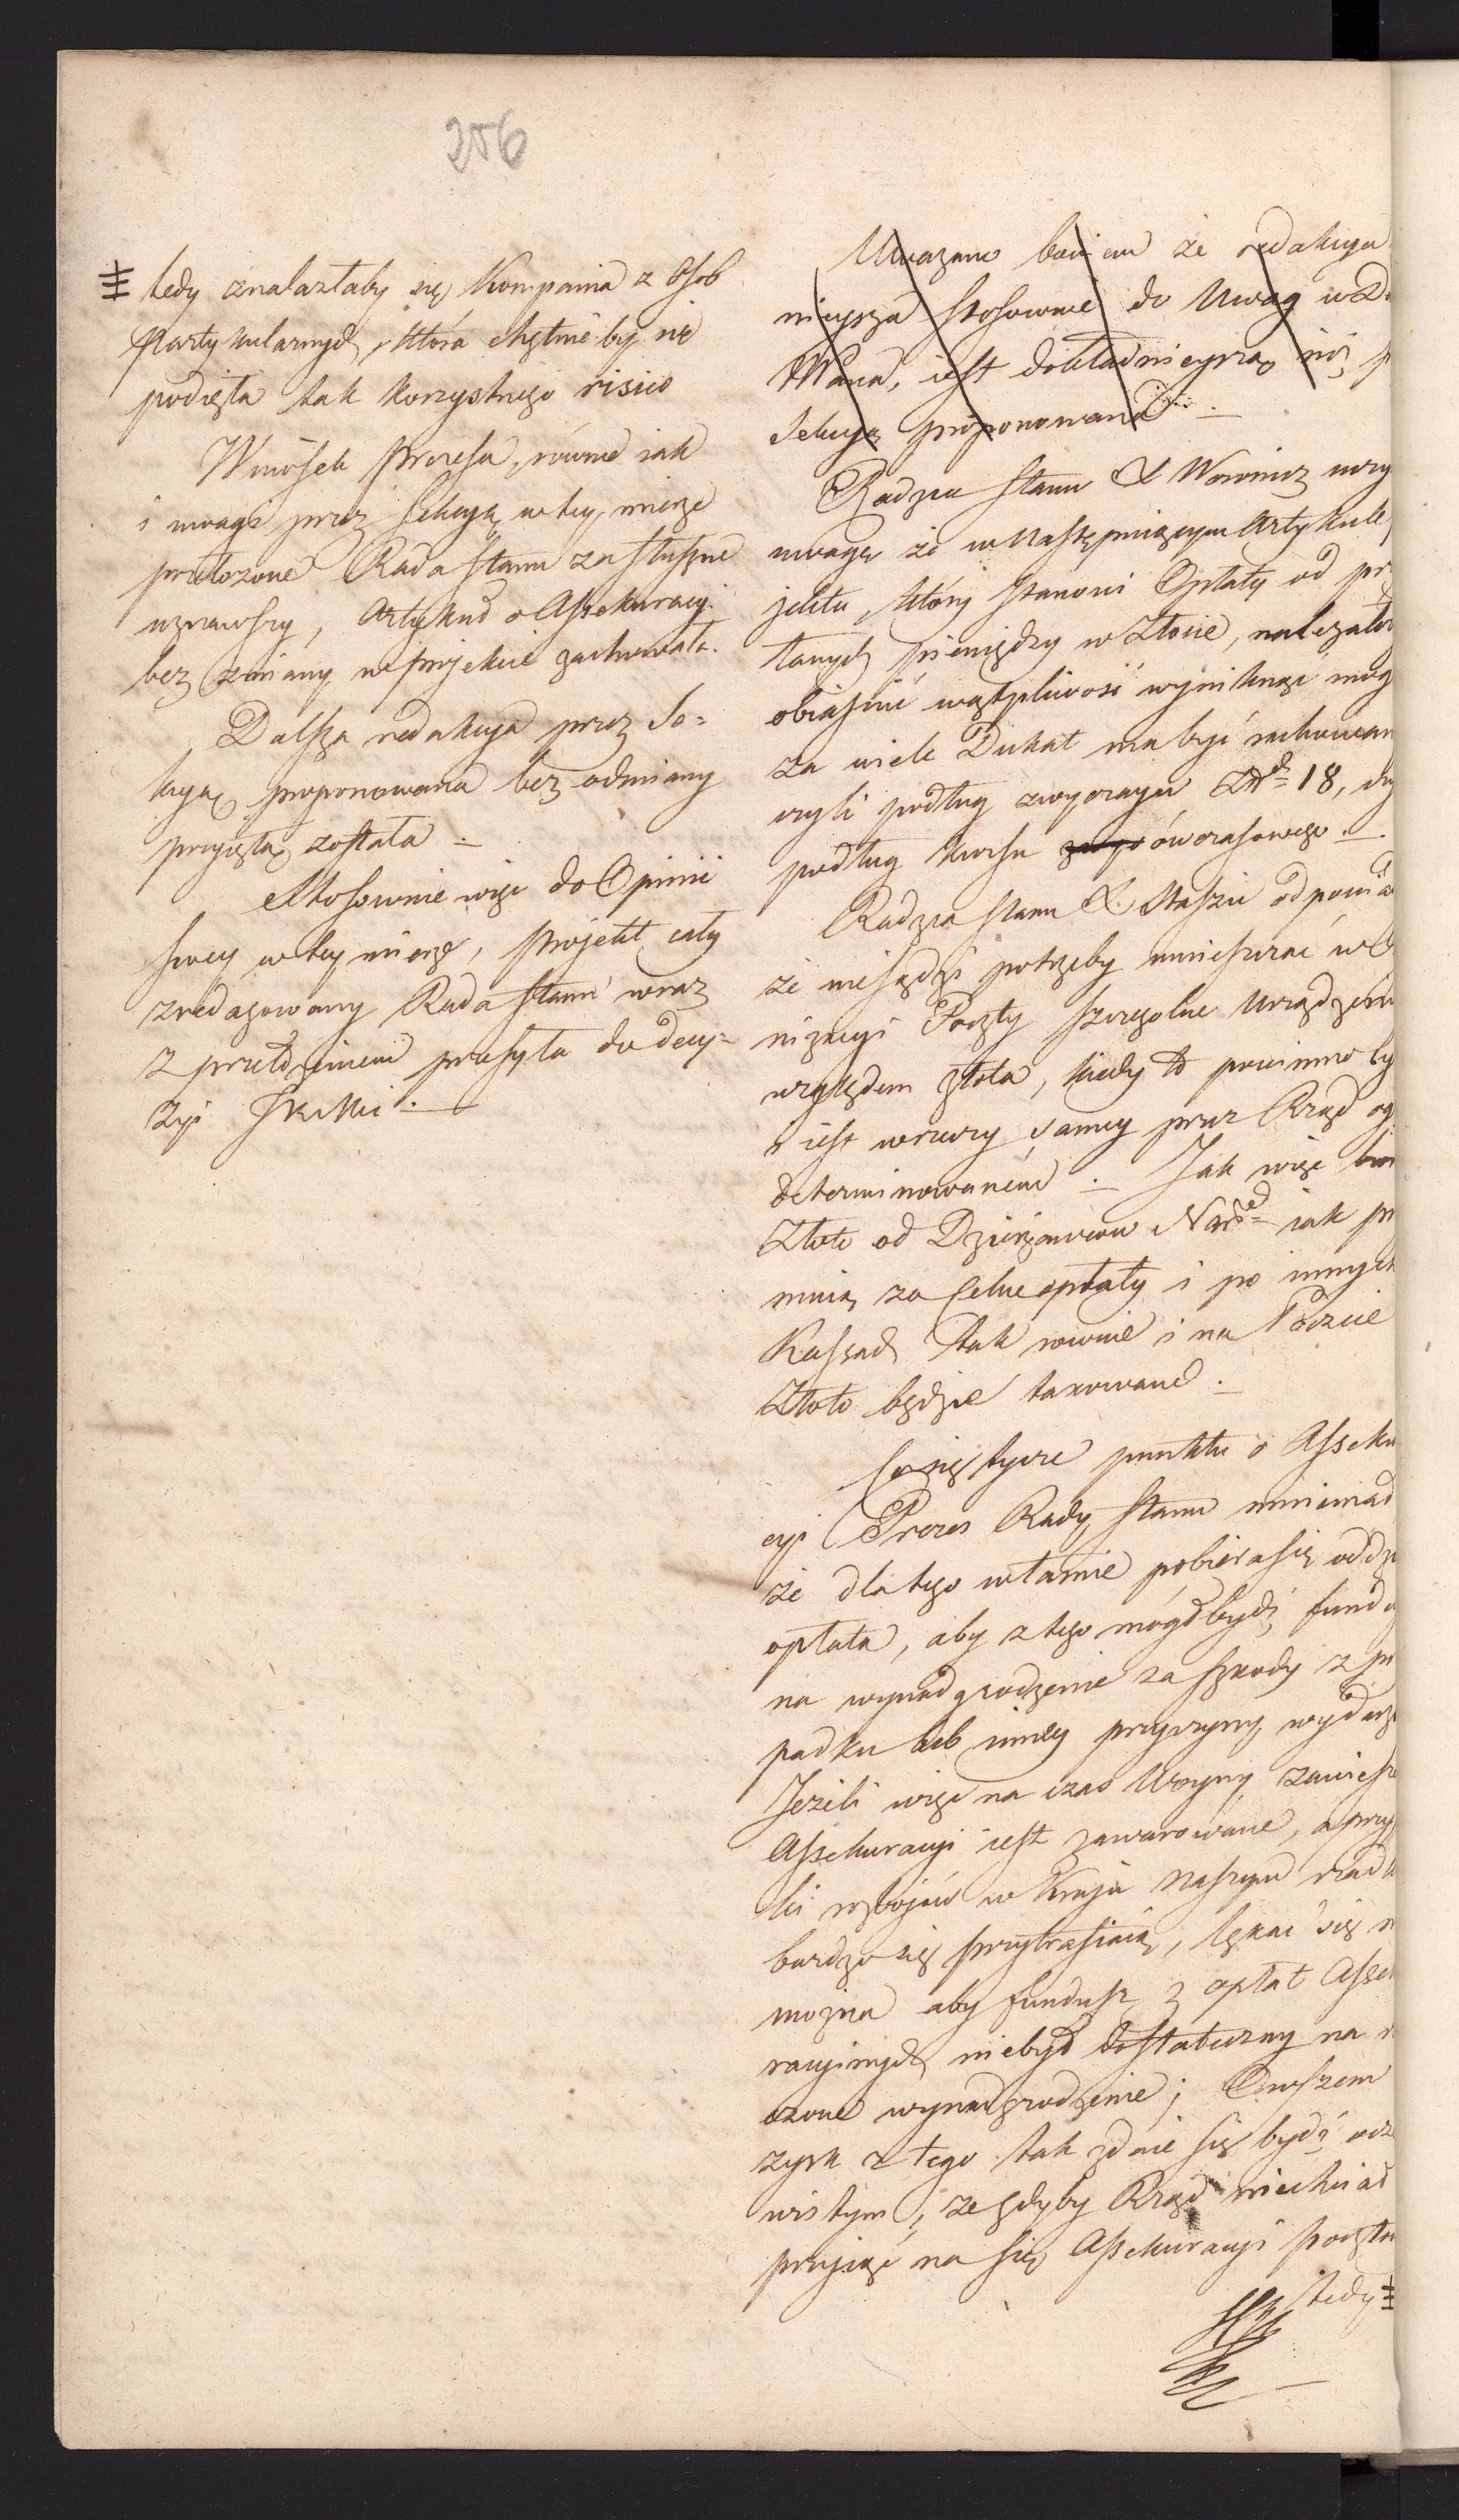 256
tedy znalazłaby się Kompania z Osob
partykularnych, która chętnie by się
podięła tak korzystnego risico
Wniosek Prezesa, równie iak
i uwagi przez Sekcyą w tey mierze
przełożone Rada Stanu za słuszne
uznawszy, Artykuł o Assekuracyi
bez zmiany w projekcie zachowała.
Dalsza redakcya przez Se=
kcyą proponowana bez odmiany
przyiętą została. —
Stosownie więc do Opinii
swey w tey mierze, projekt cały
zredagowany Rada Stanu wraz
z przełożeniem przesyła do decy=
zyi JKMci. —
Uważano bowiem że redakcya
ninieysza stosownie do Uwag w D
Wana, iest dokładnieyszą niż p
Sekcyą proponowana. —
Radzca Stanu X Woronicz uczy
uwagę że w następuiącym Artykule
jektu, który stanowi Opłatę od prze
łanych pieniędzy w Złocie, należało
obiaśnić wątpliwość wyniknąć mog
za wiele Dukat ma być rachowan
czyli podług zwyczayu Złł 18, czy
podług kursu ówczasowego. —
Radzca Stanu X. Staszic odpowia
że nie sądzi potrzeby umieszczać w O
nizacyi Poczty szczególne Urządzenie
względem złota, kiedy to powinno by
i iest w rzeczy samey przez Rząd og
determinowaném. — Jak więc bio
Złoto od Dzierżawców Nar. iak prz
muią za Celne opłaty i po innych
Kassach tak równie i na Poczcie
Złoto będzie taxowane. —
Co się tycze punktu o Asseku
cyi Prezes Rady Stanu mniemał
że dla tego właśnie pobiera się od
opłata, aby z tego mógł bydź fundu
na wynadgrodzenie za szkody z przy
padku lub inney przyczyny wydarz
Jeżeli więc na czas Woyny zawiesze
Assekuracyi iest zawarowane, a przy
ki rozbojów w Kraju naszym rzadk
bardzo się przytrafiaią, lękać się n
można aby fundusz z opłat Asseku
racyinych niebył dostateczny na r
czone wynadgrodzenie; Owszem
zysk z tego tak zdaie się bydź ocz
wistym, że gdyby Rząd niechciał
przyiąć na się Assekuracyi poczto
tedy